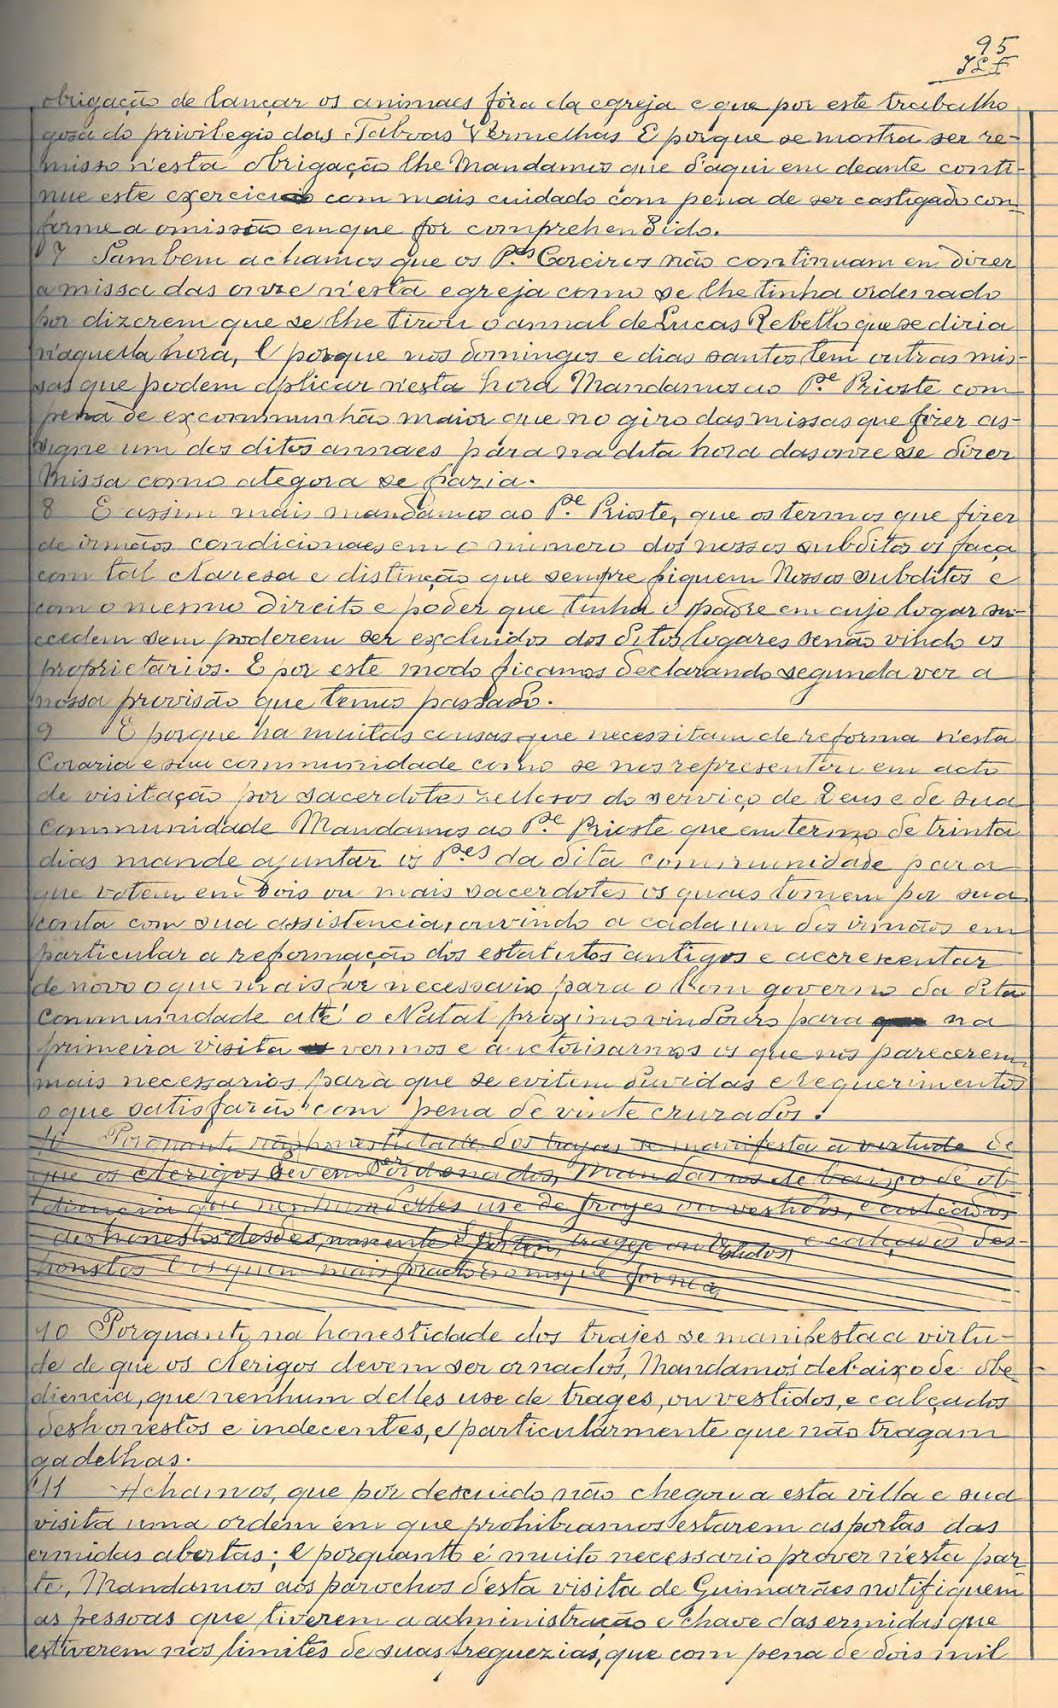 95
obrigação de lançar os animaes fóra da egreja e que por este trabalho
gosa do privilegio das Taboas Vermelhas E porque se mostra ser re-
misso n'esta obrigação lhe Mandamos que d'aqui em deante conti-
nue este exercicio com mais cuidado com pena de ser castigado con-
forme a omissão em que for comprehendido.
7 Tambem achamos que os P.es Coreiros não continuam em dizer
a missa das onze n'esta egreja como se lhe tinha ordenado
por dizerem que se lhe tirou o annal de Lucas Rebello que se dizia
n'aquella hora, E porque nos domingos e dias santos tem outras mis-
sas que podem aplicar n'esta hora Mandamos ao P.e Prioste com
pena de excommunhão maior que no giro das missas que fizer as-
signe um dos ditos annaes para na dita hora das onze se dizer
Missa como ategora se fazia.
8 E assim mais mandamos ao P.e Prioste, que os termos que fizer
de irmãos condicionaes em o numero dos nossos subditos os faça
com tal claresa e distincção que sempre fiquem Nossos subditos e
com o mesmo direito e poder que tinha o padre em cujo logar su-
ccedem sem poderem ser excluidos dos ditos logares senão vindo os
proprietarios. E por este modo ficamos declarando segunda vez a
nossa provisão que temos passado.
9 E porque ha muitas cousas que necessitam de reforma n'esta
Coraria e sua communidade como se nos representou em acto
de visitação por sacerdotes zellosos do serviço de Deus e de sua
Communidade Mandamos ao P.e Prioste que em termo de trinta
dias mande ajuntar os P.es da dita communidade para
que votem em dois ou mais sacerdotes os quaes tomem por sua
conta com sua assistencia, ouvindo a cada um dos irmãos em
particular a reformação dos estatutos antigos e accrescentar
de novo o que mais fôr necessario para o bom governo da dita
Communidade até o Natal proximo vindouro para na
primeira visita vermos e auctorisarmos os que nos parecerem
mais necessarios para que se evitem duvidas e requerimentos
o que satisfarão com pena de vinte cruzados.
10 Porquanto na honestidade dos trajes se manifesta a virtude de
que os clerigos devem ser ordenados, Mandamos debaixo de ob-
diencia que nenhum delles use de trajes ou vestidos, e calçados
deshonestos trages ou vestidos, e calçados des-
honestos
10 Porquanto na honestidade dos trajes se manifesta a virtu-
de de que os clerigos devem ser ornados, Mandamos debaixo de obe-
diencia, que nenhum delles use de trages, ou vestidos, e calçados
deshonestos e indecentes, e particularmente que não tragam
gadelhas.
11 Achamos, que por descuido não chegou a esta villa e sua
visita uma ordem em que prohibiamos estarem as portas das
ermidas abertas; E porquanto é muito necessario prover n'esta par-
te, Mandamos aos parochos d'esta visita de Guimarães notifiquem
as pessoas que tiverem a administração e chave das ermidas que
estiverem nos limites de suas freguezias, que com pena de dois mil